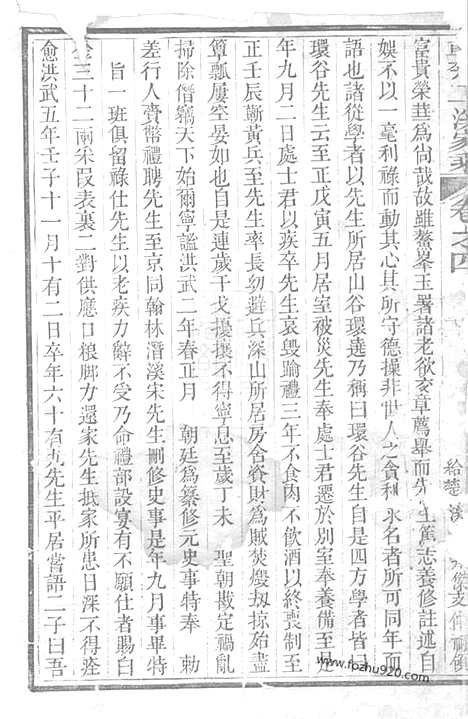 富貴榮華為尚哉故雖鰲峯玉署諸老欲交章薦舉而先生篤志養修註述自
娛不以一毫利祿而動其心其所守德操非世人之貪利求名者所可同年而
語也諸從學者以先生所居山谷環遶乃稱曰環谷先生自是四方學者皆曰
環谷先生云至正戊寅五月居室被災先生奉處士君遷於別室奉養備至是
年九月二日處士君以疾卒先生哀毀踰禮三年不食肉不飲酒以終喪制至
正壬辰蘄黃兵至先生率長幼避兵深山所居房舍資財為賊焚燬刼掠殆盡
簞瓢屢空晏如也自是連歲干戈擾攘不得寧息至歲丁未 聖朝戡定禍亂
掃除僭竊天下始爾寧謐洪武二年春正月 朝廷為纂修元史事特奉 勅
差行人賫幣禮聘先生至京同翰林潛溪宋先生刪修史事是年九月事畢特
旨一班俱留祿仕先生以老疾力辭不受乃命禮部設宴有不願仕者賜白
金三十二兩采段表裏二對供應口糧脚力還家先生抵家所患日深不得痊
愈洪武五年壬子十一月十有二日卒年六十有九先生平居嘗語二子曰吾
卷之四
www.fozhu920.com